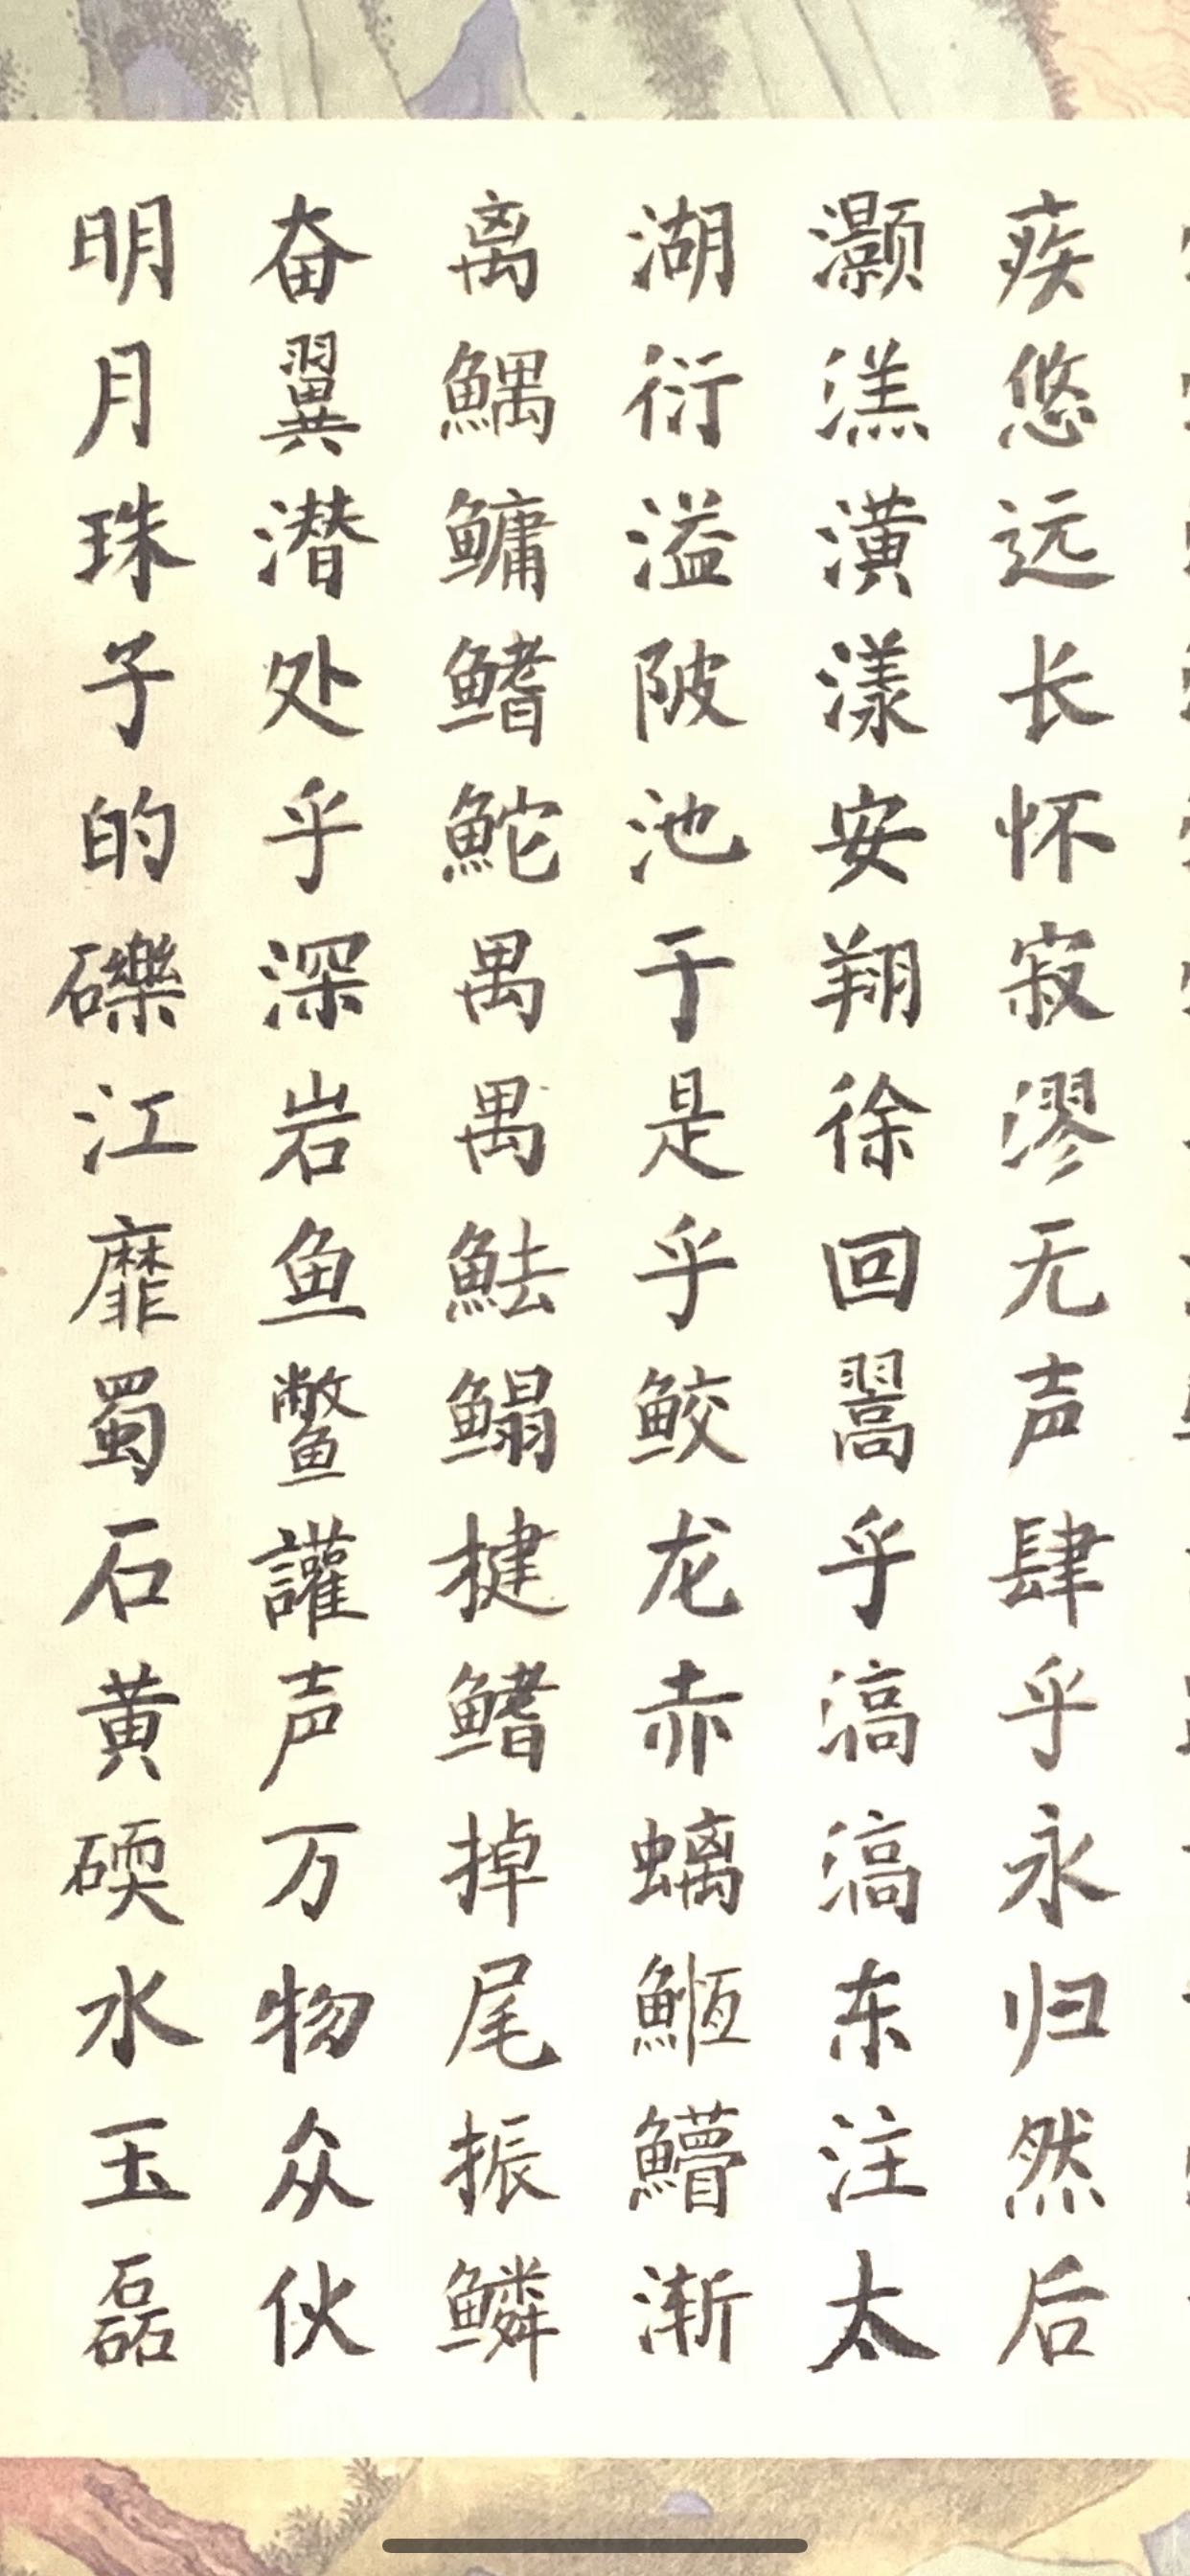 疾悠远长怀寂漻无声肆乎永归然后
灏溔潢漾安翔徐回翯乎滈滈东注太
湖衍溢陂池于是乎鲛龙赤螭䱍䲛渐
离鰅鳙鳍鮀禺禺魼鳎揵鳍掉尾振鳞
奋翼潜处乎深岩鱼鳖讙声万物众伙
明月珠子的礫江靡蜀石黄碝水玉磊